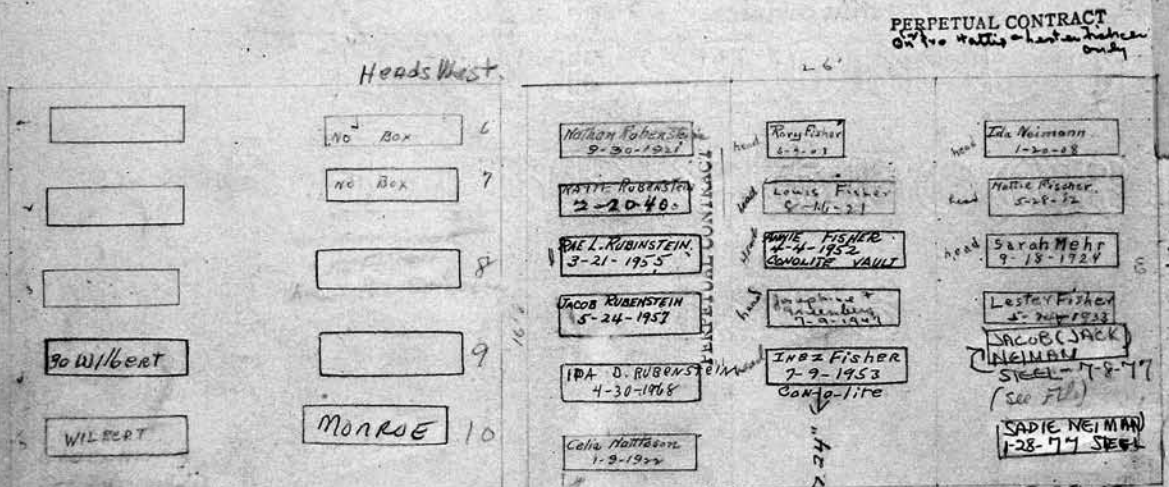 PERPETUAL CONTRACT
only
Heads West.
No Box 6
No Box 7
8
9
30 Wilbert
WILBERT
MONROE 10
PERPETUAL CONTRACT
Nathan Rubenstein
9-30-1921
RUBENSTEIN
2-20-40.
RAE L. RUBINSTEIN.
3-21-1955
JACOB RUBENSTEIN
5-24-1957
IDA D. RUBENSTEIN
4-30-1968
Celia
1-9-1922
head
Rory Fisher
head
Lowis Fisher
8-16-21
head
ANNIE FISHER
4-4-1952
CONOLITE VAULT
head
Josephine
7-9-1947
head
INEZ FISHER
7-9-1953
Con-o-lite
24"
head
Ida Neimann
1-20-08
head
5-28-12
head
Sarah Mehr
9-18-1924
Lester Fisher
JACOB (JACK)
NEIMAN
STEEL - 7-8-77
(See File)
SADIE NEIMAN
1-28-77 STEEL